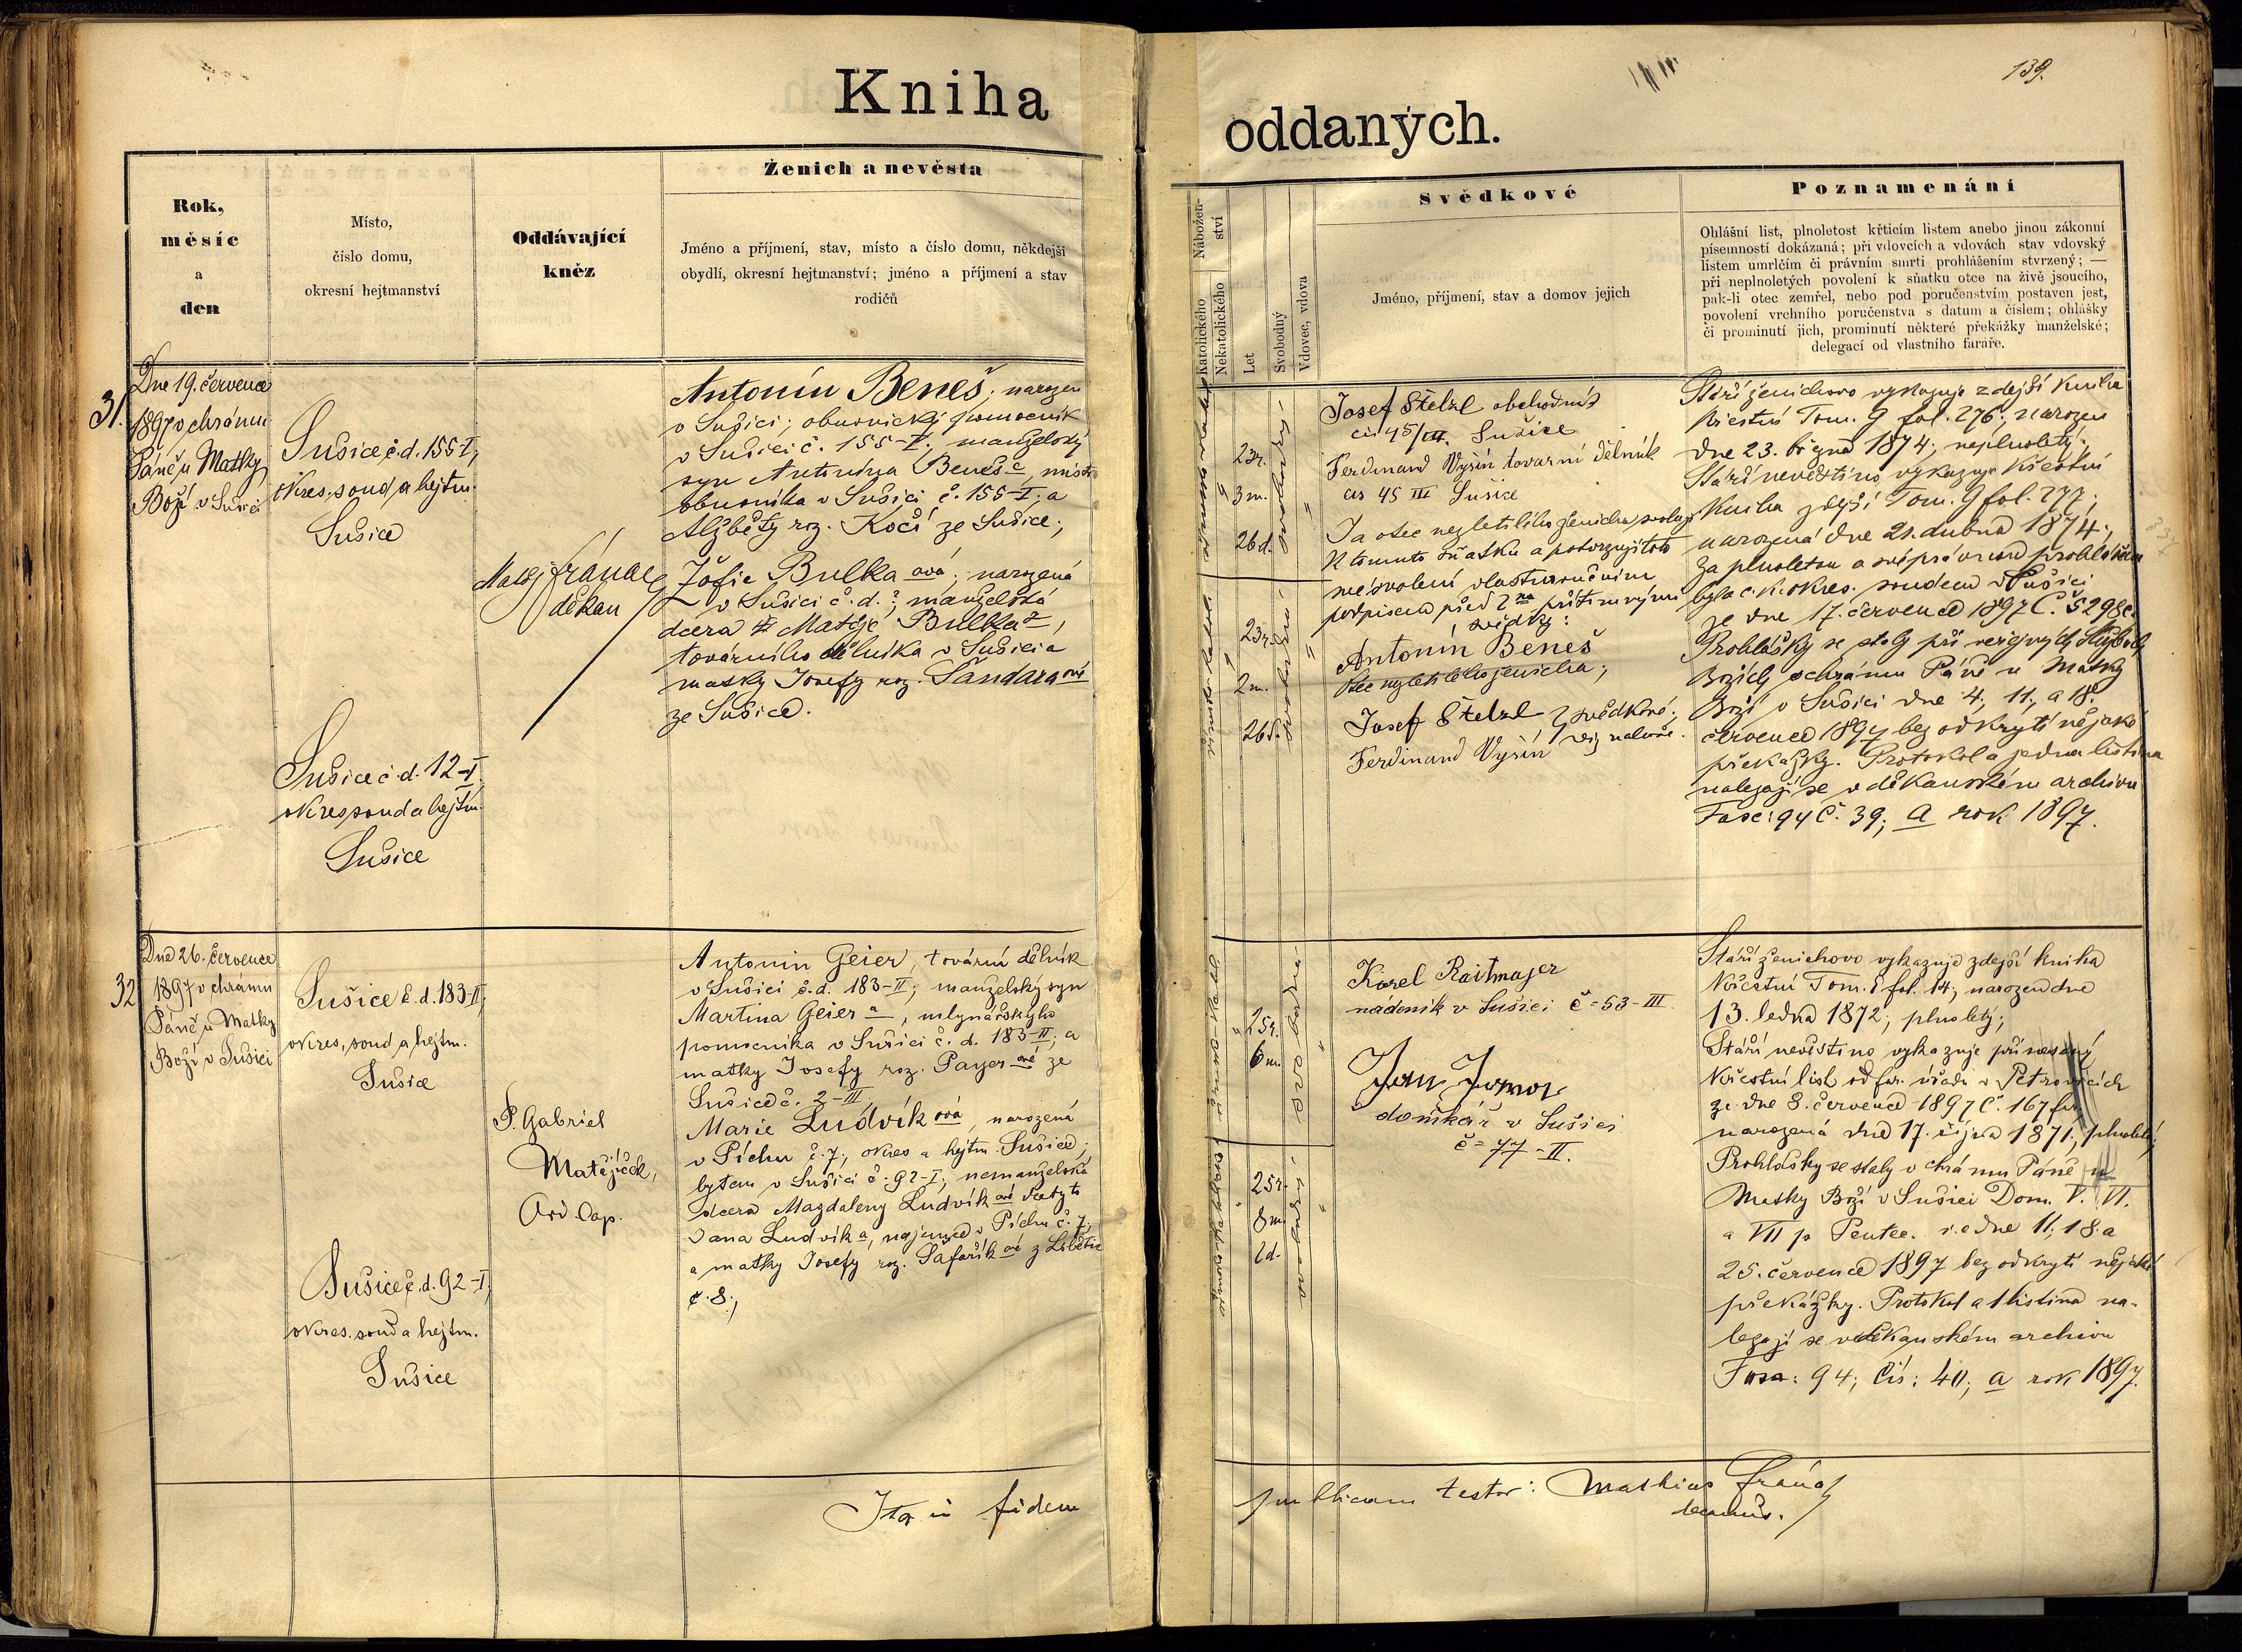 Kniha
oddaných.
139.
Rok,
měsíc
a
den
Místo,
číslo domu,
okresní hejtmanství
Oddávající
kněz
Ženich a nevěsta
Jméno a příjmení, stav, místo a číslo domu, někdejší
obydlí, okresní hejtmanství; jméno a příjmení a stav
rodičů
Nábožen-
ství
Katolického
Nekatolického
Let
Svobodný
Vdovec, vdova
Svědkové
Jméno, příjmení, stav a domov jejich
Poznamenání
Ohlášní list, plnoletost křticím listem anebo jinou zákonní
písemností dokázaná; při vdovcích a vdovách stav vdovský
listem umrlčím či právním smrti prohlášením stvrzený; —
při neplnoletých povolení k sňatku otce na živě jsoucího,
pak-li otec zemřel, nebo pod poručenstvím postaven jest,
povolení vrchního poručenstva s datum a číslem; ohlášky
či prominutí jich, prominutí některé překážky manželské;
delegací od vlastního faráře.
31.
Dne 19. července
1897 v chrámu
Páně u Matky
Boží v Sušici
Sušice č.d. 155-I,
okres. soud a hejtm.
Sušice
Sušice č.d. 12-I.
okres. soud a hejtm.
Sušice
Matěj Fránac
děkan
Antonín Beneš, narozen
v Sušici; obuvnický pomocník
v Sušici č. 155-I; manželský
syn Antonína Beneše, mistr
obuvníka v Sušici č. 155-I; a
Alžběty roz. Kočí ze Sušice;
Žofie Bulkaová; narozená
v Sušici č.d.?; manželská
dcera Matěje Bulka,
továrního dělníka v Sušici a
matky Josefy roz. Šandaraové
ze Sušice.
23r.
3m.
26d.
23r.
2m.
26d.
Josef Stelzl obchodník
čís 45/III. Sušice
Ferdinand Vyšín tovarní dělník
čís 45 III Sušice
Já otec nezletilého ženicha svoluji
k tomuto sňatku a potvrzuji toto
mé svolení vlastnoručním
podpisem před 2ma přítomnými
svědky:
Antonín Beneš
otec nezletilého ženicha;
Josef Stelzl } svědkové;
Ferdinand Vyšín } viz nahoře.
Stáří ženichovo vykazuje zdejší kniha
křestní Tom. 9 fol. 276; narozen
dne 23. března 1874; neplnoletý;
Stáří nevěstino vykazuje křestní
kniha zdejší Tom. 9 fol. 277;
narozená dne 21. dubna 1874;
za plnoletou a svéprávnou prohlášena
byla c.k. okres. soudem v Sušici
ze dne 17. července 1897 Č. 5298;
Prohlášky se staly při veřejných službách
Božích v chrámu Páně u Matky
Boží v Sušici dne 4., 11. a 18.
července 1897 bez odkrytí nějaké
překážky. Protokol a jedna listina
nalezají se v děkanském archivu
Fasc: 94 Č. 39; a rok 1897.
32
Dne 26. července
1897 v chrámu
Páně u Matky
Boží v Sušici
Sušice č.d. 183-II;
okres. soud a hejtm.
Sušice
Sušice č.d. 92-I,
okres. soud a hejtm.
Sušice
P. Gabriel
Matějíček,
Antonin Geier, tovární dělník
v Sušici č.d. 183-II; manželský syn
Martina Geiera, mlynářského
pomocníka v Sušici č.d. 183-II; a
matky Josefy roz. Payerové ze
Sušice č. 2-III.
Marie Ludvíková, narozená
v Píchu č. 7, okres a hejtm. Sušice;
bytem v Sušici č. 92-I; nemanželská
dcera Magdaleny Ludvíkové
Jana Ludvíka, nájemce v Píchu č. 7,
a matky Josefy roz. Šafaříkové z
č. 8.;
25r.
6m.
25r.
8m.
Karel Raitmajer
nádeník v Sušici č=53-III
Jan
domkář v Sušici
č=77-II.
Stáří ženichovo vykazuje zdejší kniha
křestní Tom. 8 fol. 14; narozen dne
13. ledna 1872; plnoletý;
Stáří nevěstino vykazuje přinesený
křestní list od far. úřadu v Petrovicích
ze dne 8. července 1897 č. 167
narozená dne 17. října 1871, plnoletá;
Prohlášky se staly v chrámu Páně u
Matky Boží v Sušici Dom. V. VI.
a VII p. Pentec. i.e. dne 11., 18. a
25. července 1897 bez odkrytí nějaké
překážky. Protokol a 1 listina na-
lezají se v děkanském archivu
Fasc: 94; čís: 40; a rok 1897.
Ita in fidem
publicam testor: Mathias Fránac
decanus.